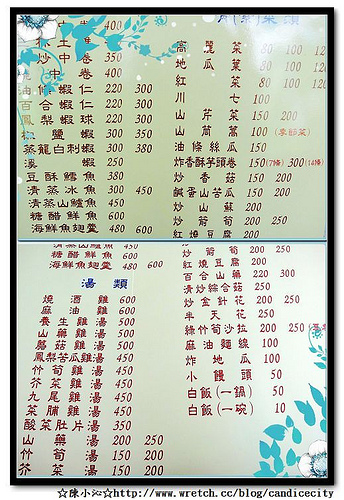 400
炒 中 卷 400
百 合 蝦 仁 220 300
鳳 梨 蝦 球 220 300
椒 鹽 蝦 350
蒸龍白刺蝦 300 380
溪 蝦 250
豆 酥 鱈 魚 380
清 蒸 冰 魚 300 450
清蒸山鱸魚 450
糖 醋 鮮 魚 600
海鮮魚翅羹 480 600
高 麗 菜 80 100 120
地 瓜 葉 80 100 120
紅 菜 80 100
川 七 100
山 芹 菜 150 200
山 茼 蒿 100 (季節菜)
油 條 絲 瓜 150
炸香酥芋頭卷 150 300
炒 香 菇 150 200
鹹蛋山苦瓜 150 200
炒 山 蘇 200
炒 筍 200 250
紅 燒 豆 腐 200
清蒸山鱸魚 450
糖 醋 鮮 魚 600
海鮮魚翅羹 480 600
湯 類
燒 酒 雞 600
麻 油 雞 600
養 生 雞 湯 500
山 藥 雞 湯 500
蘑 菇 雞 湯 500
鳳梨苦瓜雞湯 450
竹 筍 雞 湯 450
芥 菜 雞 湯 450
九 尾 雞 湯 450
菜 脯 雞 湯 450
酸菜肚片湯 350
山 藥 湯 200 250
竹 筍 湯 150 200
芥 菜 湯 150 200
炒 筍 200 250
紅 燒 豆 腐 200
百 合 山 藥 220 300
清炒綜合菇 250
炒 金 針 花 200 250
半 天 花 250
綠竹筍沙拉 200 250
麻 油 麵 線 100
炸 地 瓜 100
小 饅 頭 50
白飯(一鍋) 50
白飯(一碗) 10
☆陳小沁☆http://www.wretch.cc/blog/candicecity